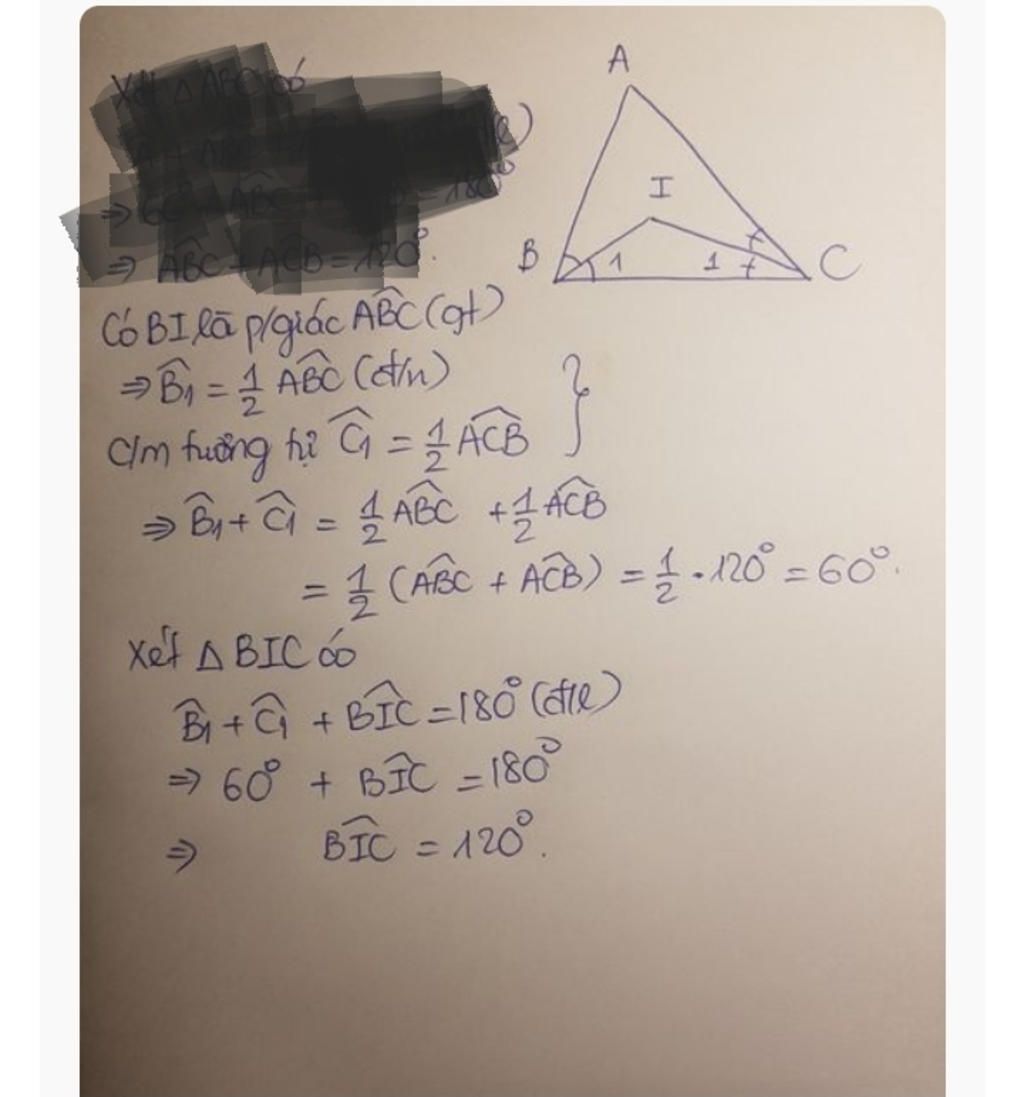 Xét △ABC có
⇒ ABC + ACB = 120°.
Có BI là p/giác ABC (gt)
⇒ B̂1 = 1/2 ABC (đ/n)
C/m tương tự Ĉ1 = 1/2 ACB
⇒ B̂1 + Ĉ1 = 1/2 ABC + 1/2 ACB
= 1/2 (ABC + ACB) = 1/2 . 120° = 60°.
Xét △BIC có
B̂1 + Ĉ1 + BIC = 180° (đ/l)
⇒ 60° + BIC = 180°
⇒ BIC = 120°.
A
I
B 1 1 C